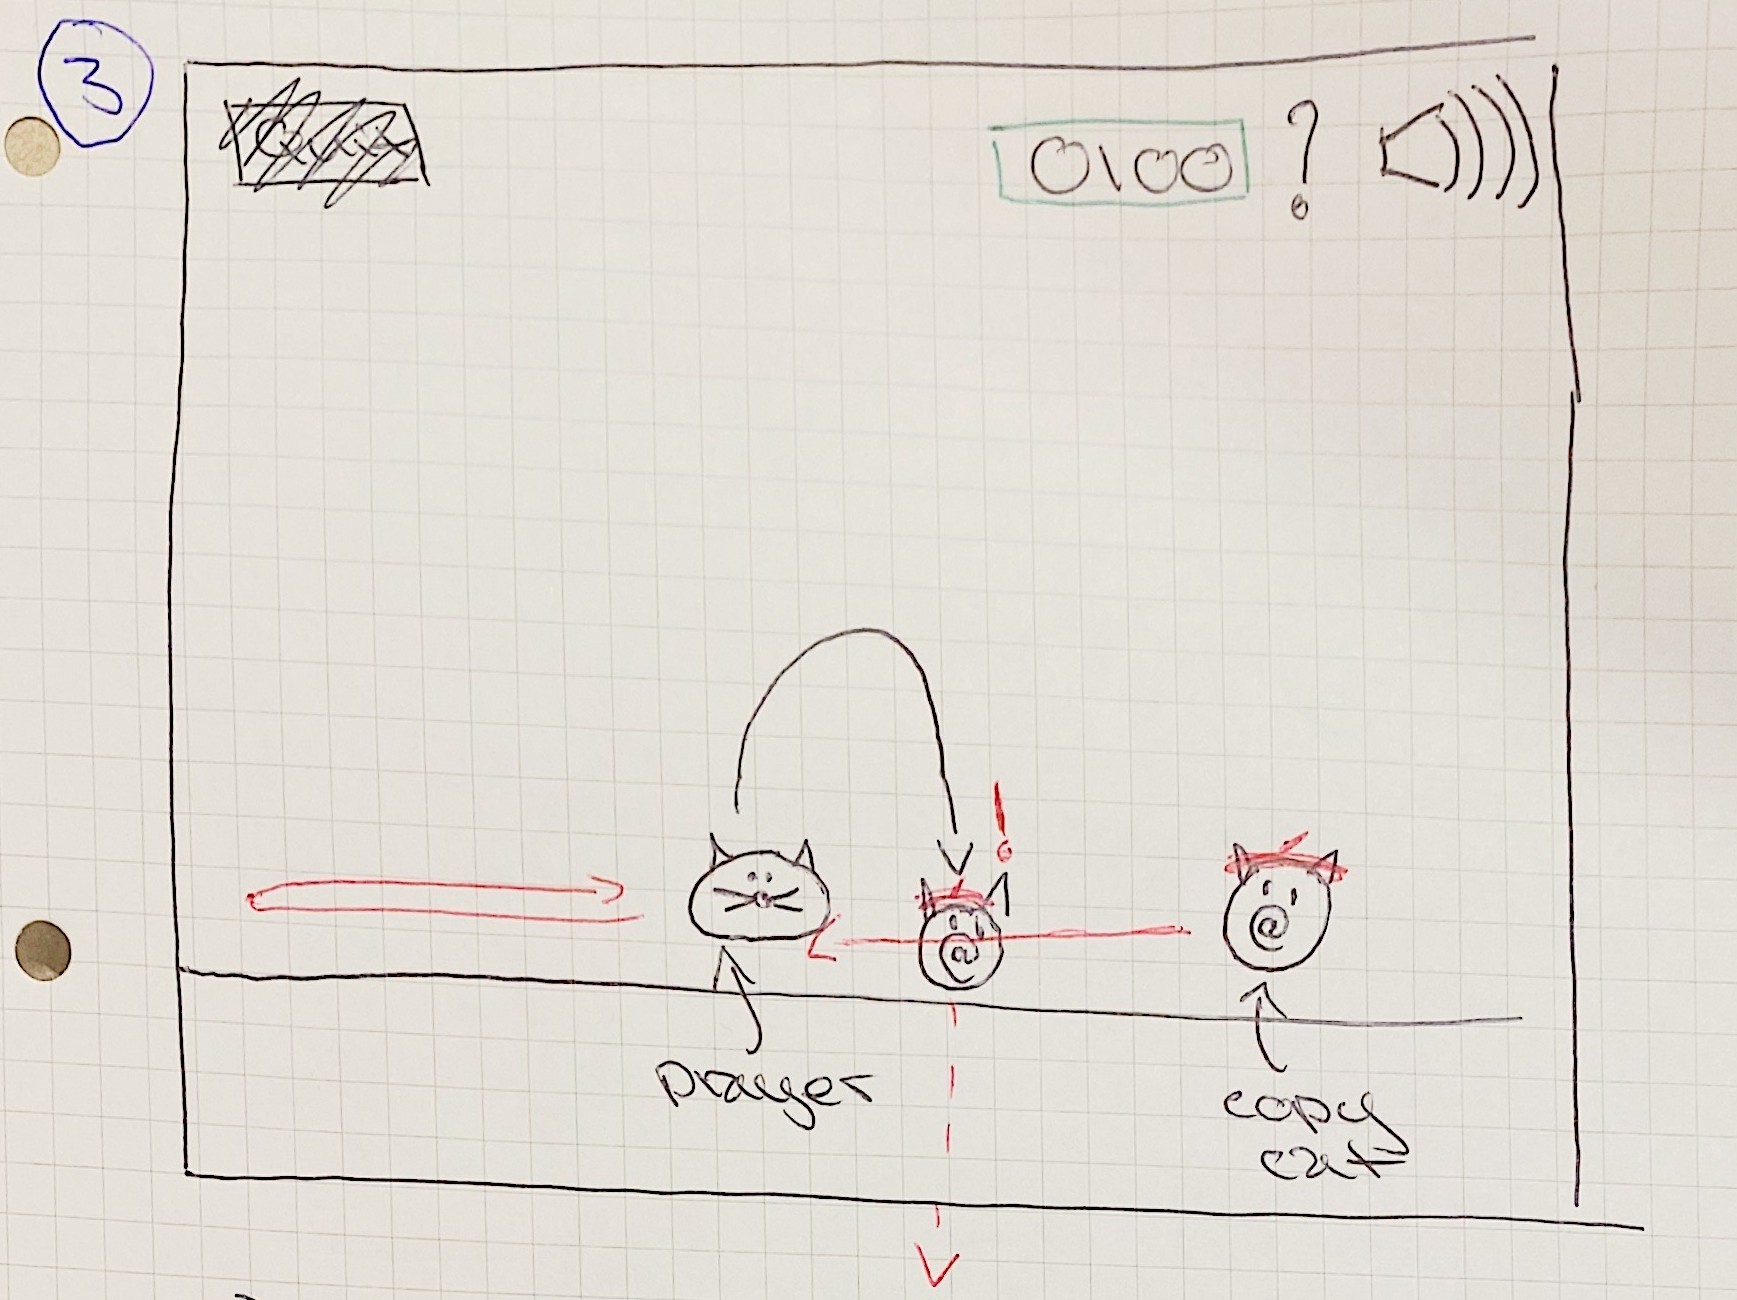 3
0100 ?
!
@ @
player
copy
cat